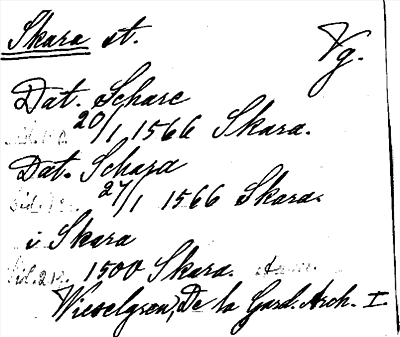 Skara st. Vg.
Dat. Scharc
20/1 1566 Skara.
Dat. Schara
27/1 1566 Skara.
i Skara
1500 Skara.
Wieselgren, De la Gard. Arch. I.